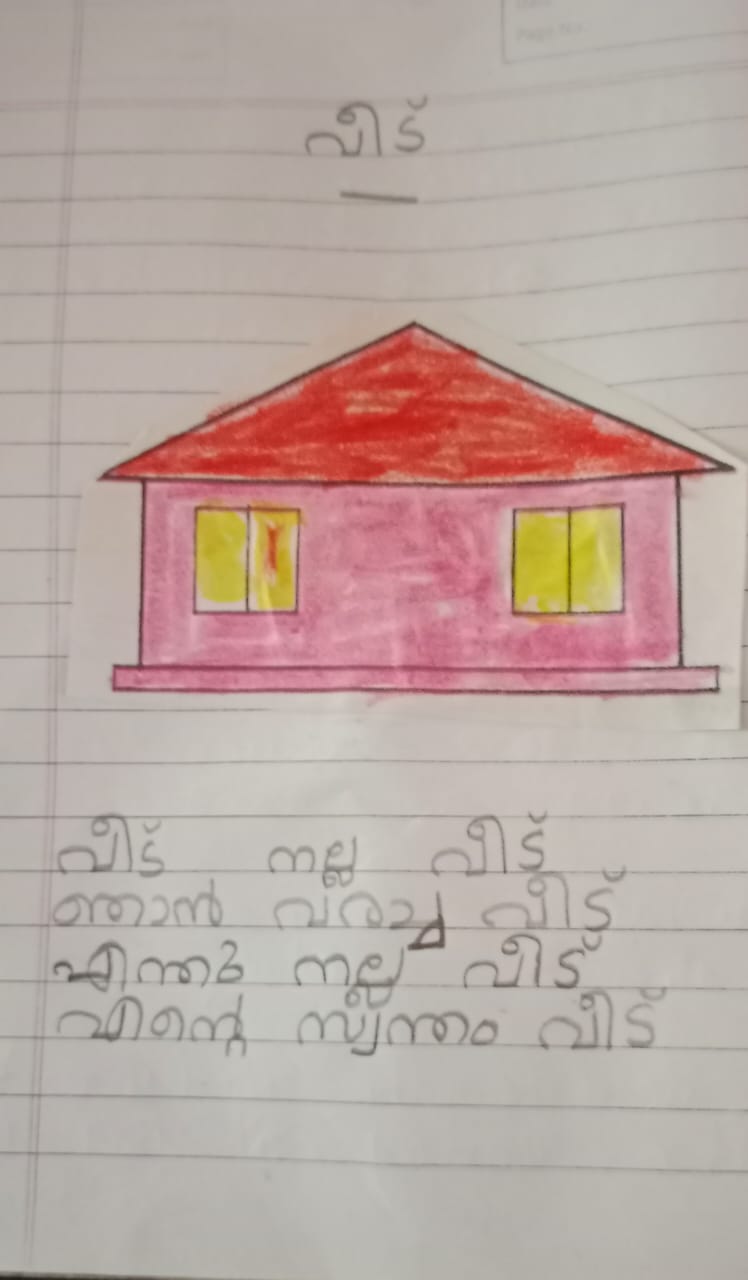 Page No.
വീട്
വീട് നല്ല വീട്
ഞാൻ വരച്ച വീട്
എന്തു നല്ല വീട്
എന്റെ സ്വന്തം വീട്